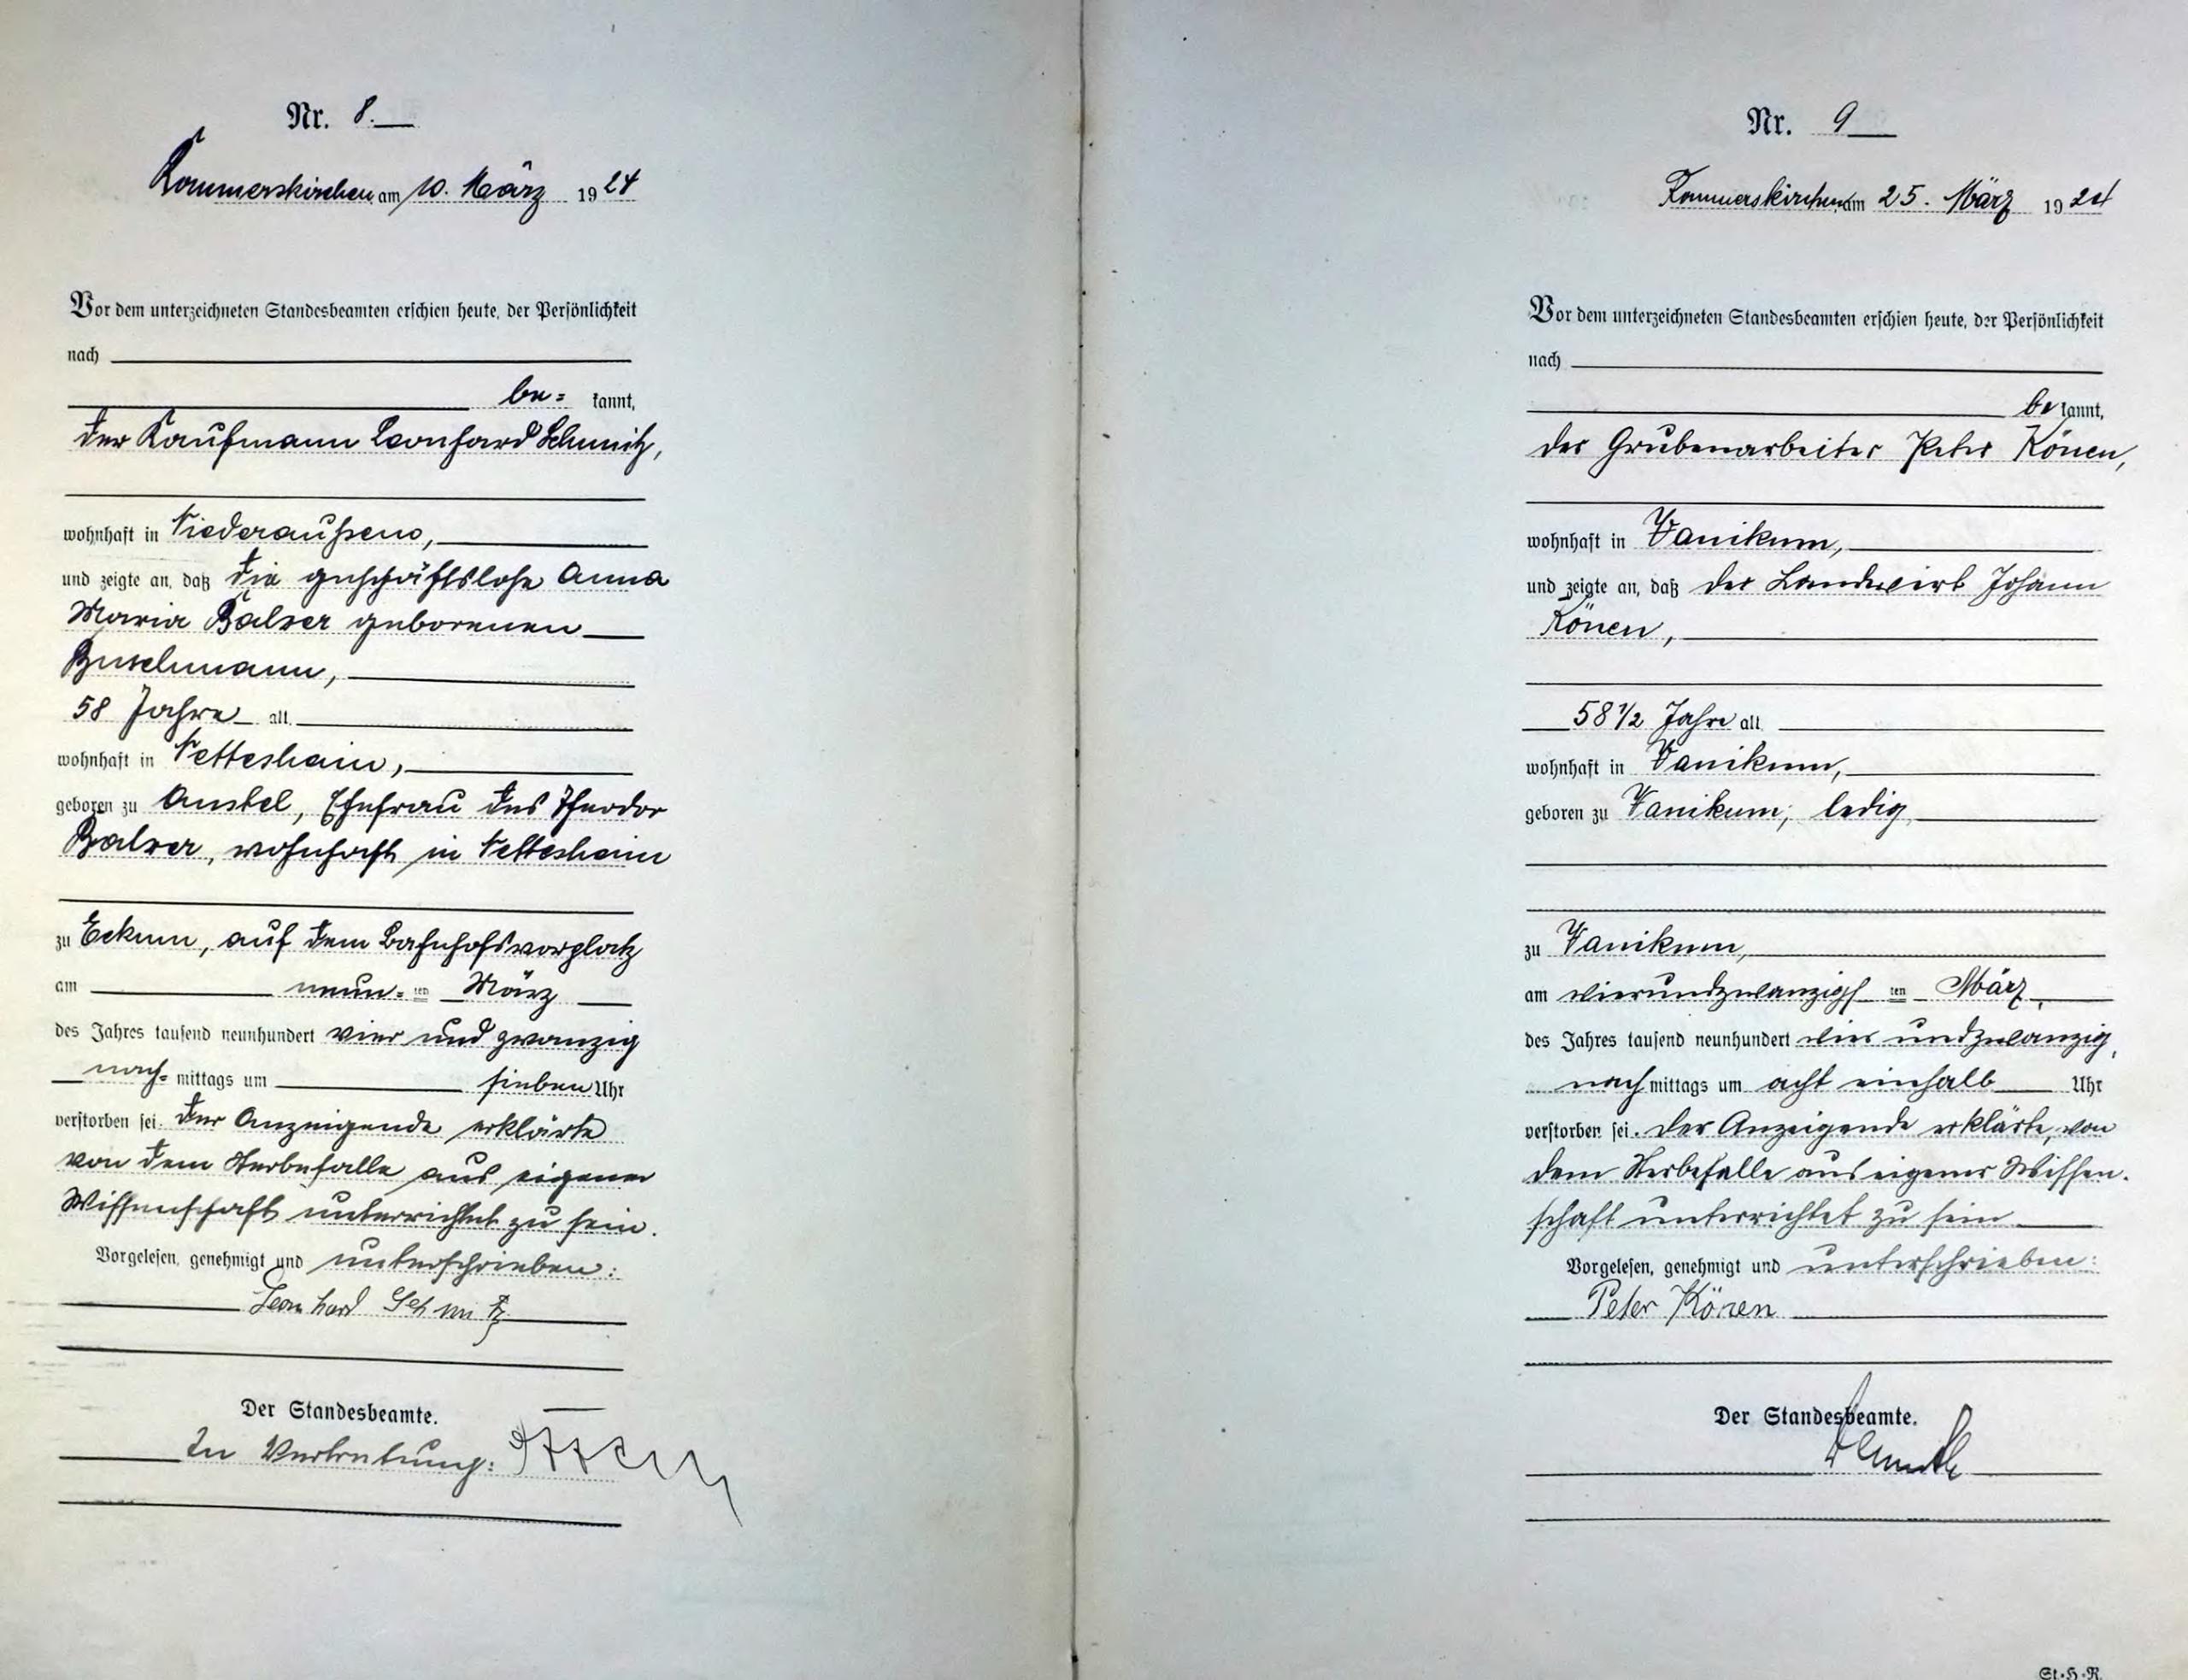 Nr. 8.
Rommerskirchen am 10. März 1924
Vor dem unterzeichneten Standesbeamten erschien heute, der Persönlichkeit
nach
be= kannt,
der Kaufmann Leonhard Schmitz,
wohnhaft in Niederaußem,
und zeigte an, daß die geschäftslose Anna
Maria Balver geborenen
Buschmann,
58 Jahre alt,
wohnhaft in Nettesheim,
geboren zu Anstel, Ehefrau des Theodor
Balver, wohnhaft in Nettesheim
zu Eckum, auf dem Bahnhofsvorplatz
am neun= ten März
des Jahres tausend neunhundert vier und zwanzig
nach= mittags um sieben Uhr
verstorben sei. Der Anzeigende erklärte
von dem Sterbefalle aus eigener
Wissenschaft unterrichtet zu sein.
Vorgelesen, genehmigt und unterschrieben:
Leonhard Schmitz
Der Standesbeamte.
In Vertretung:
Nr. 9
Rommerskirchen am 25. März 1924
Vor dem unterzeichneten Standesbeamten erschien heute, der Persönlichkeit
nach
be kannt,
der Grubenarbeiter Peter Könen,
wohnhaft in Vanikum,
und zeigte an, daß der Landwirt Johann
Könen,
58 1/2 Jahre alt
wohnhaft in Vanikum,
geboren zu Vanikum, ledig
zu Vanikum,
am vierundzwanzigs ten März,
des Jahres tausend neunhundert vier undzwanzig,
nach mittags um acht einhalb Uhr
verstorben sei. Der Anzeigende erklärte, von
dem Sterbefalle aus eigener Wissen-
schaft unterrichtet zu sein
Vorgelesen, genehmigt und unterschrieben:
Peter Könen
Der Standesbeamte.
St.H.R.